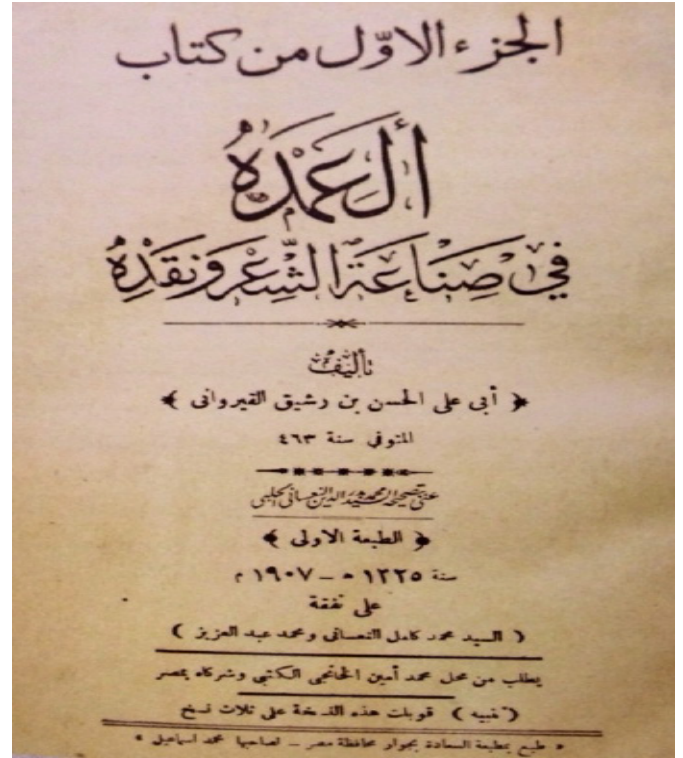 الجزء الاوّل من كتاب
ألعمدهُ
في صناعة الشعر ونقدهِ
تأليف
﴿ أبى على الحسن بن رشيق القيروانى ﴾
المتوفي سنة ٤٦٣
عنى بتصحيحه السيد محمد بدر الدين النعسانى الحلبى
﴿ الطبعة الاولى ﴾
سنة ١٣٢٥ ه – ١٩٠٧ م
على نفقة
( السيد محمد كامل النعسانى ومحمد عبد العزيز )
يطلب من محل محمد أمين الخانجى الكتبي وشركاه بمصر
( تنبيه ) قوبلت هذه النسخة على ثلاث نسخ
« طبع بمطبعة السعادة بجوار محافظة مصر – لصاحبها محمد اسماعيل »